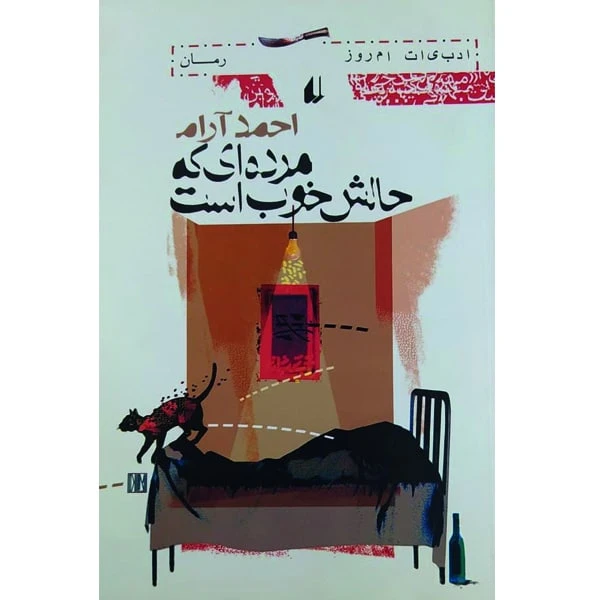 ادبی‌ات امروز
رمان
احمد آرام
مرده‌ای که
حالش خوب است